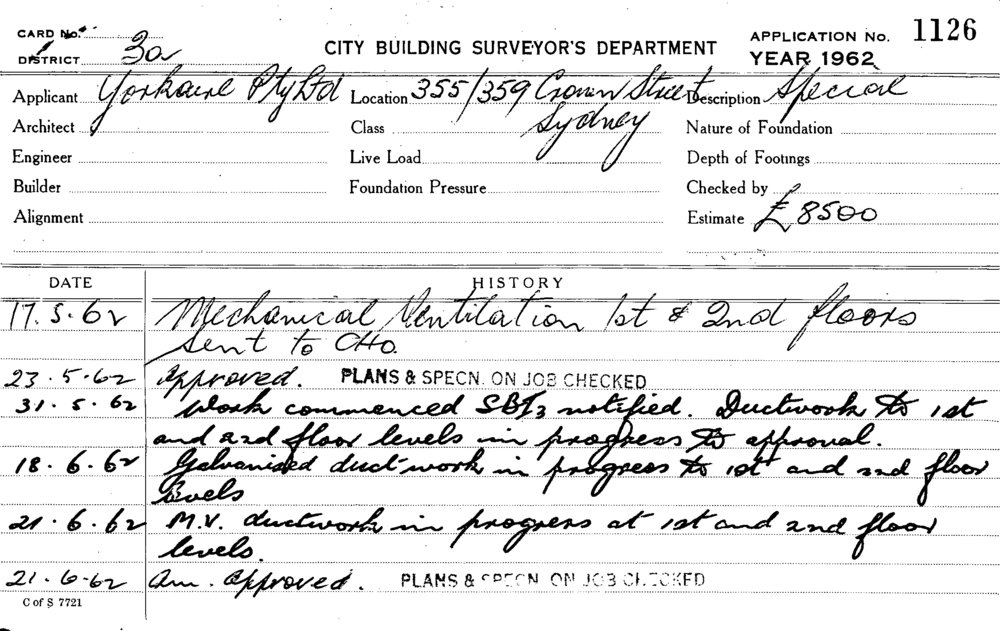 CARD No.
DISTRICT 3a
CITY BUILDING SURVEYOR'S DEPARTMENT
APPLICATION No. 1126
YEAR 1962
Applicant Yorkaire Pty Ltd Location 355/359 Crown Street Description Special
Architect Class Sydney Nature of Foundation
Engineer Live Load Depth of Footings
Builder Foundation Pressure Checked by
Alignment Estimate £8500
DATE HISTORY
17.5.62 Mechanical Ventilation 1st & 2nd floors
sent to CHO.
23.5.62 Approved. PLANS & SPECN. ON JOB CHECKED
31.5.62 Work commenced SBI3 notified. Ductwork to 1st
and 2nd floor levels in progress to approval.
18.6.62 Galvanised duct work in progress to 1st and 2nd floor
levels
21.6.62 M.V. ductwork in progress at 1st and 2nd floor
levels.
21.6.62 Am. approved. PLANS & SPECN. ON JOB CHECKED
C of S 7721